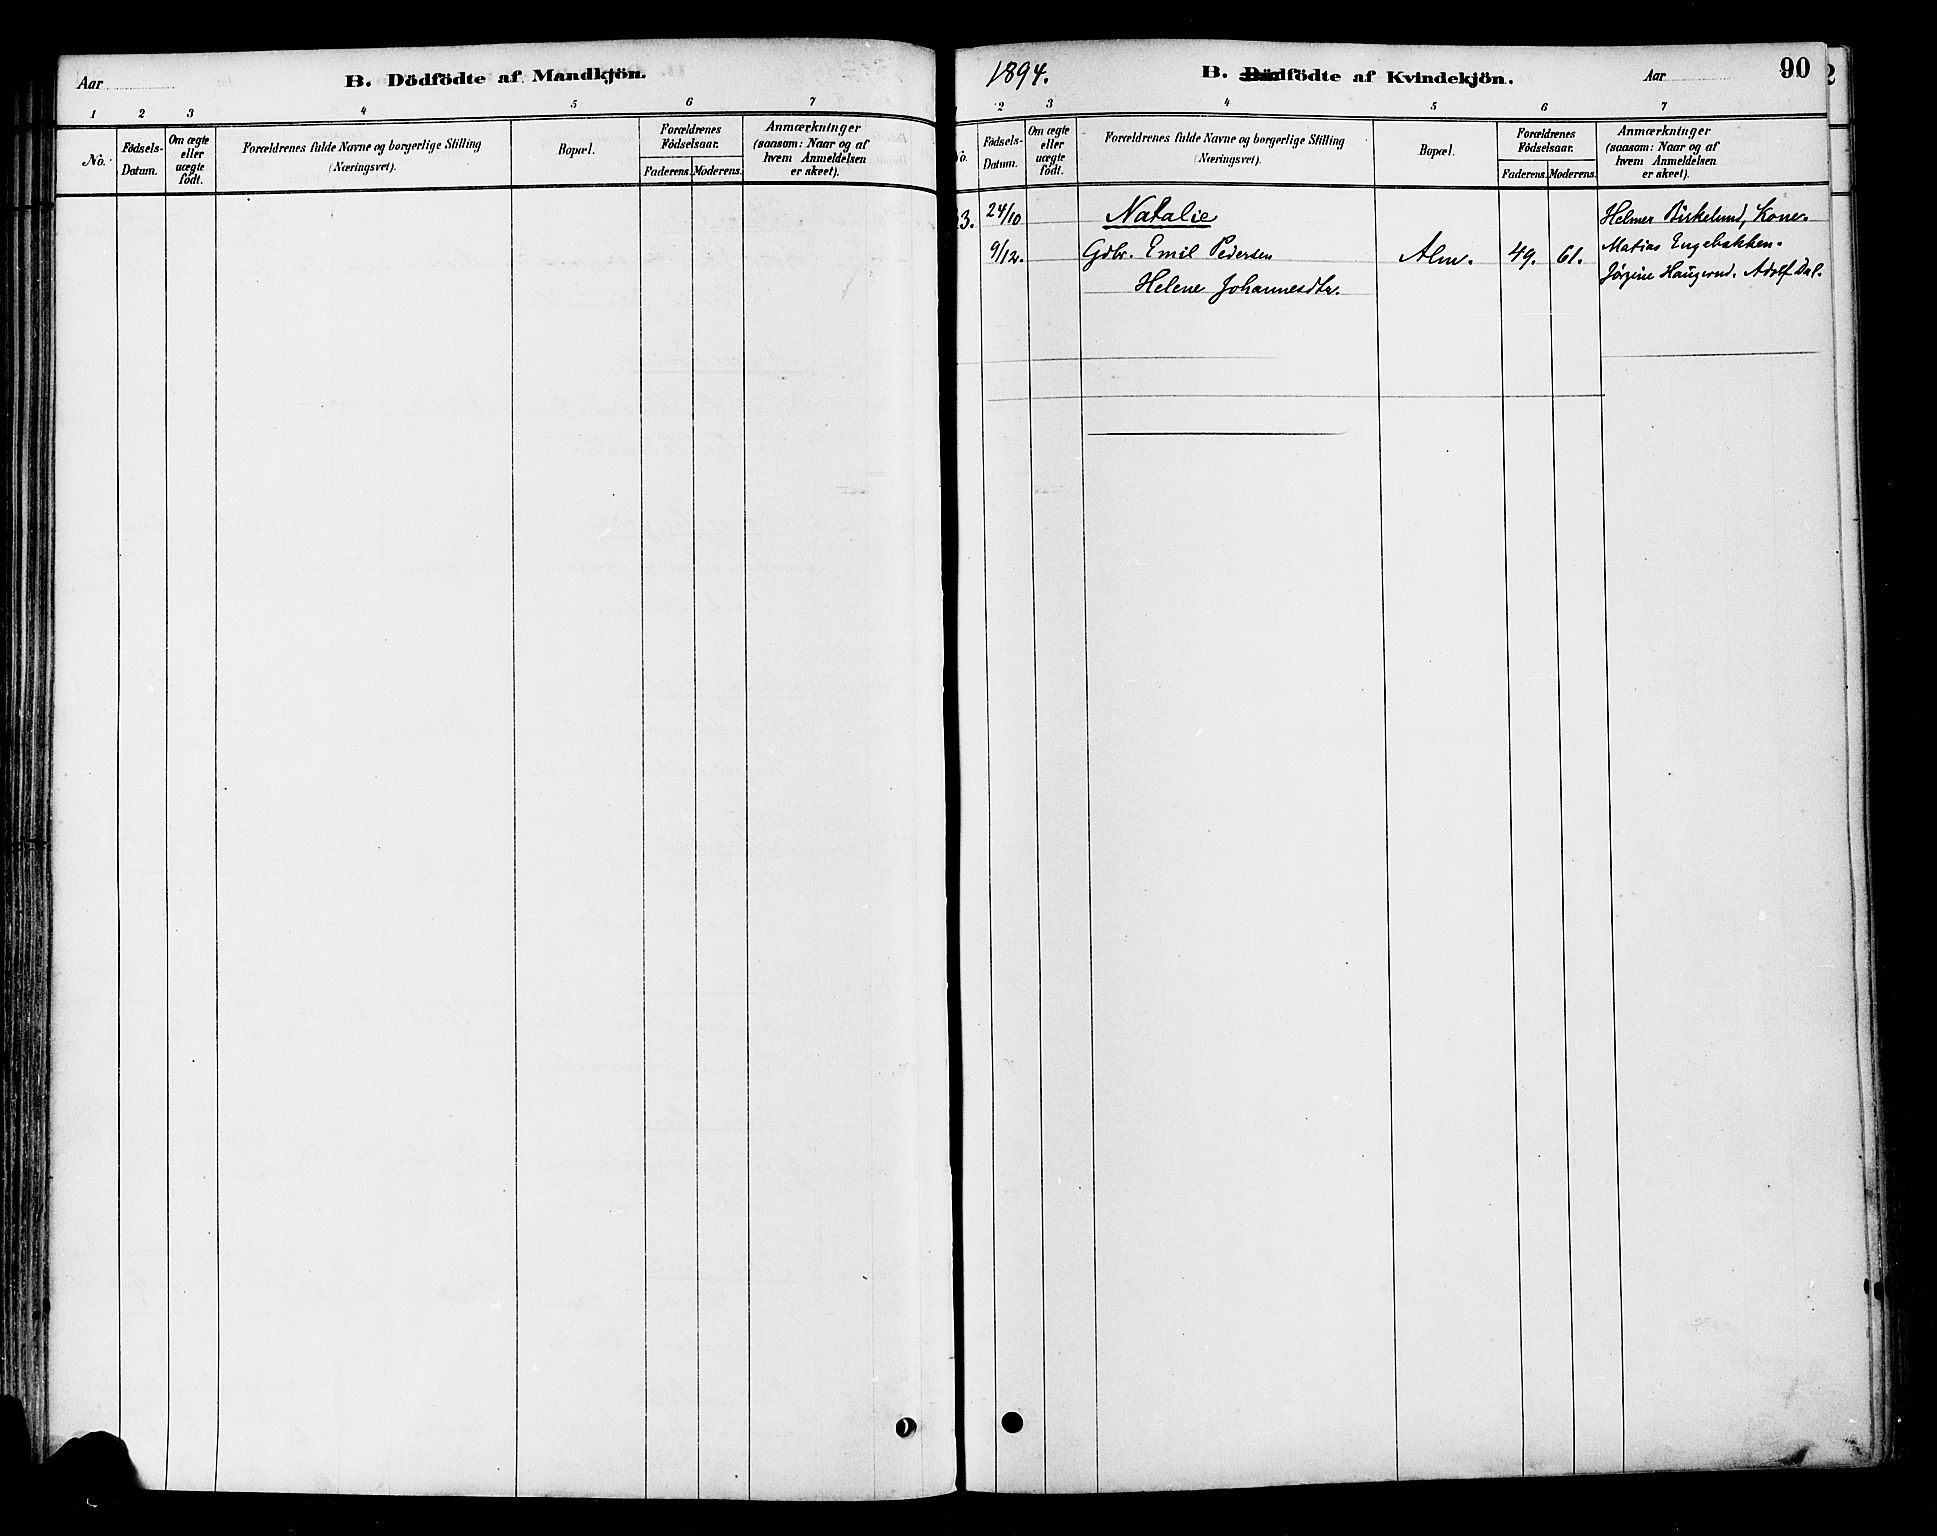 Aar
B. Dödfödte af Mandkjön.
1 2 3 4 5 6 7
No.
Födsels-
Datum.
Om ægte
eller
uægte
födt.
Forældrenes fulde Navne og borgerlige Stilling
(Næringsvei).
Bopæl.
Forældrenes
Födselsaar.
Faderens. Moderens.
Anmærkninger
(saasom: Naar og af
hvem Anmeldelsen
er skeet).
1894.
B. Dödfödte af Kvindekjön.
Aar
90
2 3 4 5 6 7
No.
Födsels-
Datum.
Om ægte
eller
uægte
födt.
Forældrenes fulde Navne og borgerlige Stilling
(Næringsvei).
Bopæl.
Forældrenes
Födselsaar.
Faderens. Moderens.
Anmærkninger
(saasom: Naar og af
hvem Anmeldelsen
er skeet).
3. 24/10 Natalie Helmer Birkelund, Kone.
9/12. Gdbr. Emil Pedersen Alm. 49. 61. Matias Engebakken.
Helene Johannesdtr. Jørgine Haugerud. Adolf Dal.